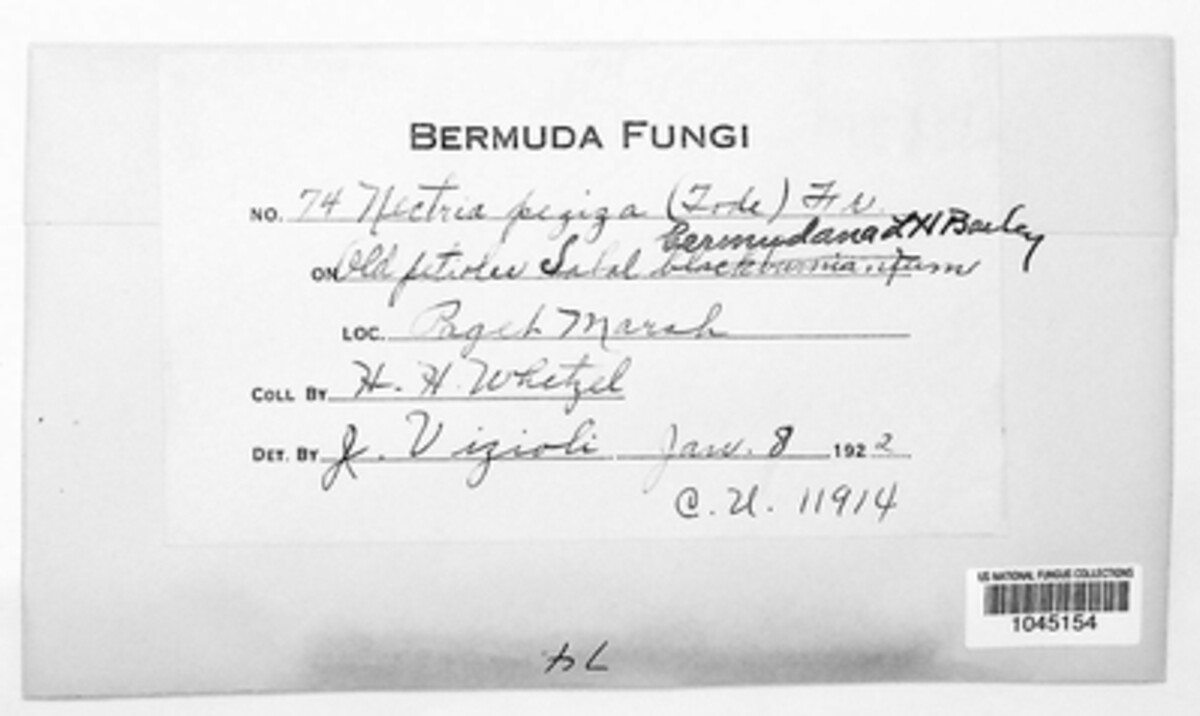 BERMUDA FUNGI
NO. 74 Nectria peziza (Tode) Fr.
bermudana L H Bailey
ON Old petioles Sabal blackburnianum
LOC. Paget Marsh
COLL BY H. H. Whetzel
DET. BY J. Vizioli Jan. 8 1922
C. U. 11914
US NATIONAL FUNGUS COLLECTIONS
1045154
74